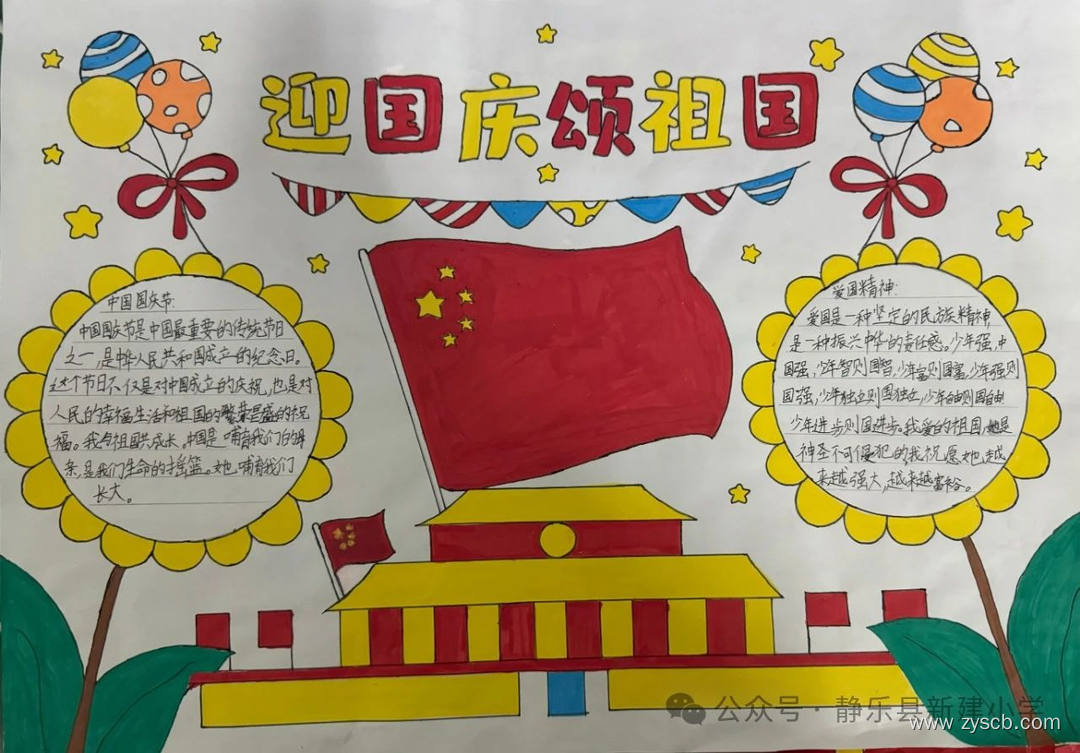 迎国庆颂祖国
中国国庆节:
中国国庆节是中国最重要的传统节日
之一,是中华人民共和国成立的纪念日。
这个节日不仅是对中国成立的庆祝,也是对
人民的幸福生活和祖国的繁荣昌盛的祝
福。我与祖国共成长,中国是哺育我们的母
亲,是我们生命的摇篮。她,哺育我们
长大。
爱国精神:
爱国是一种坚定的民族精神,
是一种振兴中华的责任感。少年强,中
国强,少年智则国智,少年富则国富,少年强则
国强,少年独立则国独立,少年自由则国自由
少年进步则国进步。我爱的祖国,她是
神圣不可侵犯的,我祝愿她越
来越强大,越来越富裕。
公众号·静乐县新建小学
www.zyscb.com